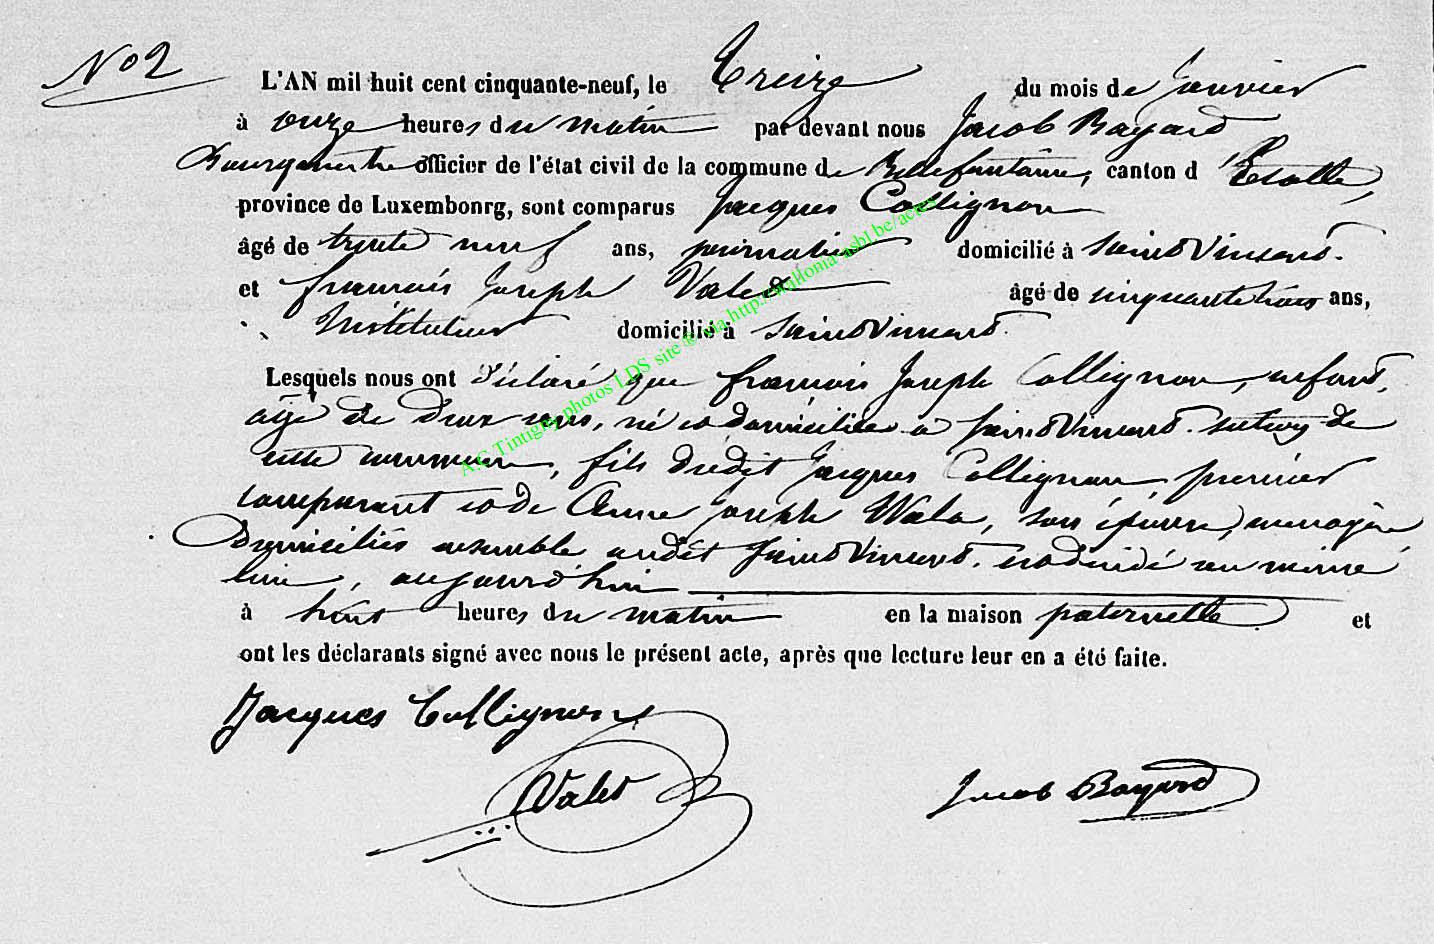 No 2
L'AN mil huit cent cinquante-neuf, le Treize du mois de Janvier
à onze heures du matin par devant nous Jacob Bayard
Bourgmestre officier de l'état civil de la commune de Bellefontaine, canton d'Etalle,
province de Luxembonrg, sont comparus Jacques Collignon
âgé de trente neuf ans, journalier domicilié à Saint Vincent.
et françois Joseph Valet âgé de cinquante trois ans,
Instituteur domicilié à Saint Vincent.
Lesquels nous ont déclaré que françois Joseph Collignon, enfant,
âgé de deux ans, né et domicilié à Saint Vincent section de
cette commune, fils dudit Jacques Collignon, premier
comparant et de Anne Joseph Wala, son épouse, ménagère
Domiciliés ensemble audit Saint Vincent. est décédé au même
lieu, aujourd'hui
à huit heures du matin en la maison paternelle et
ont les déclarants signé avec nous le présent acte, après que lecture leur en a été faite.
Jacques Collignon
Valet
Jacob Bayard
A.C Tintigny photos LDS site @ via http://wallonia-asbl.be/actes